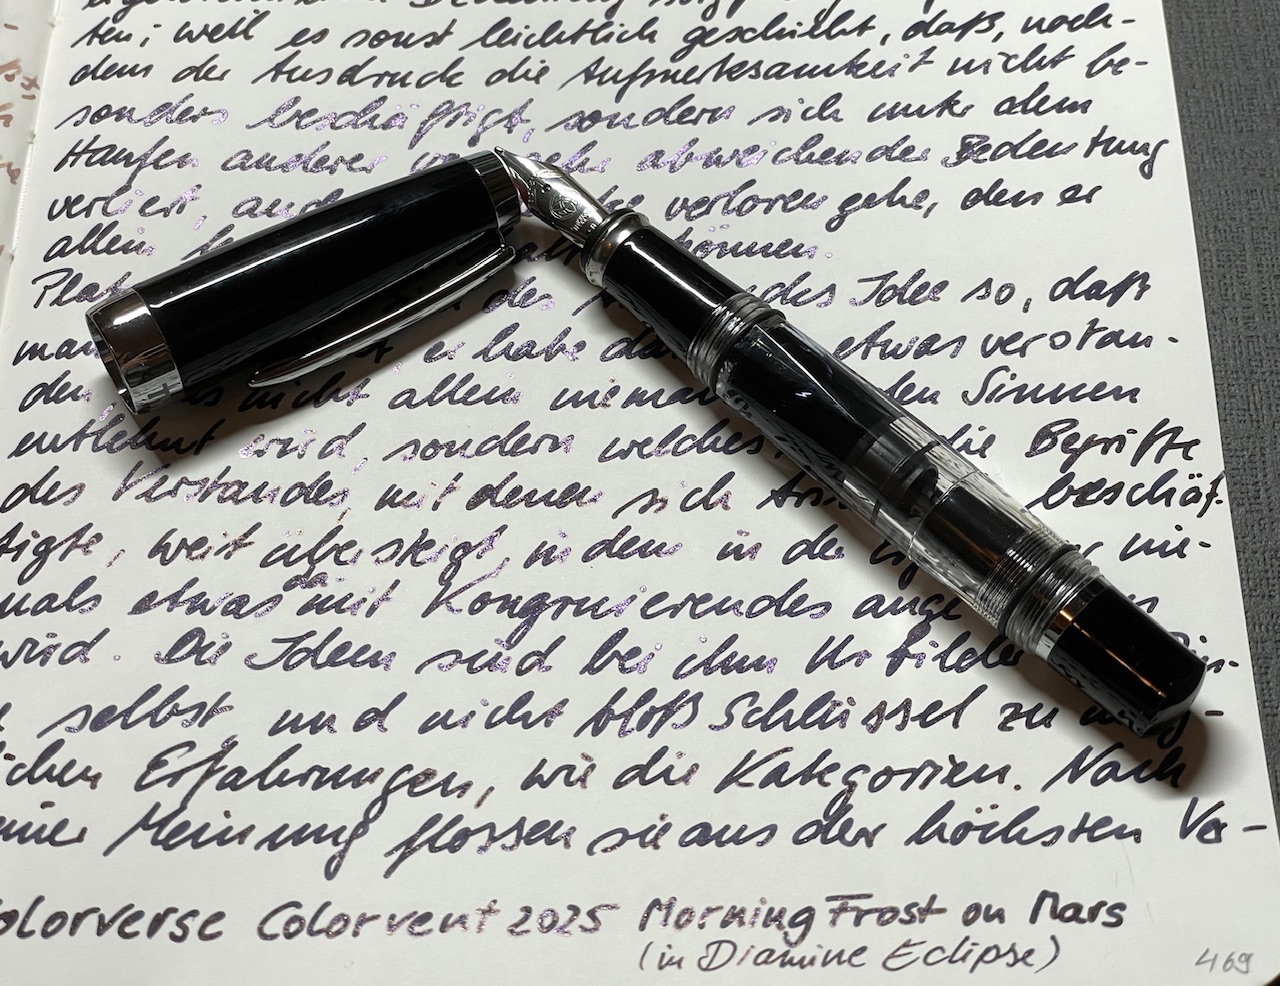 Bedeutung
ten; weil es sonst leichtlich geschieht, daß, nach-
dem der Ausdruck die Aufmerksamkeit nicht be-
sonders beschäftigt, sondern sich unter dem
Haufen anderer abweichender Bedeutung
verliert, verloren gehe, den er
allein können.
Idee so, daß
man er habe etwas verstan-
den, nicht allein den Sinnen
entlehnt wird, sondern welches die Begriffe
des Verstandes, mit denen sich beschäf-
tigte, weit übersteigt, indem in der nie-
mals etwas damit Kongruierendes ange
wird. Die Ideen sind bei ihm Urbilder
selbst, und nicht bloß Schlüssel zu mög-
ichen Erfahrungen, wie die Kategorien. Nach
einer Meinung flossen sie aus der höchsten Ver-
olorverse Colorvent 2025 Morning Frost on Mars
(in Diamine Eclipse)
469